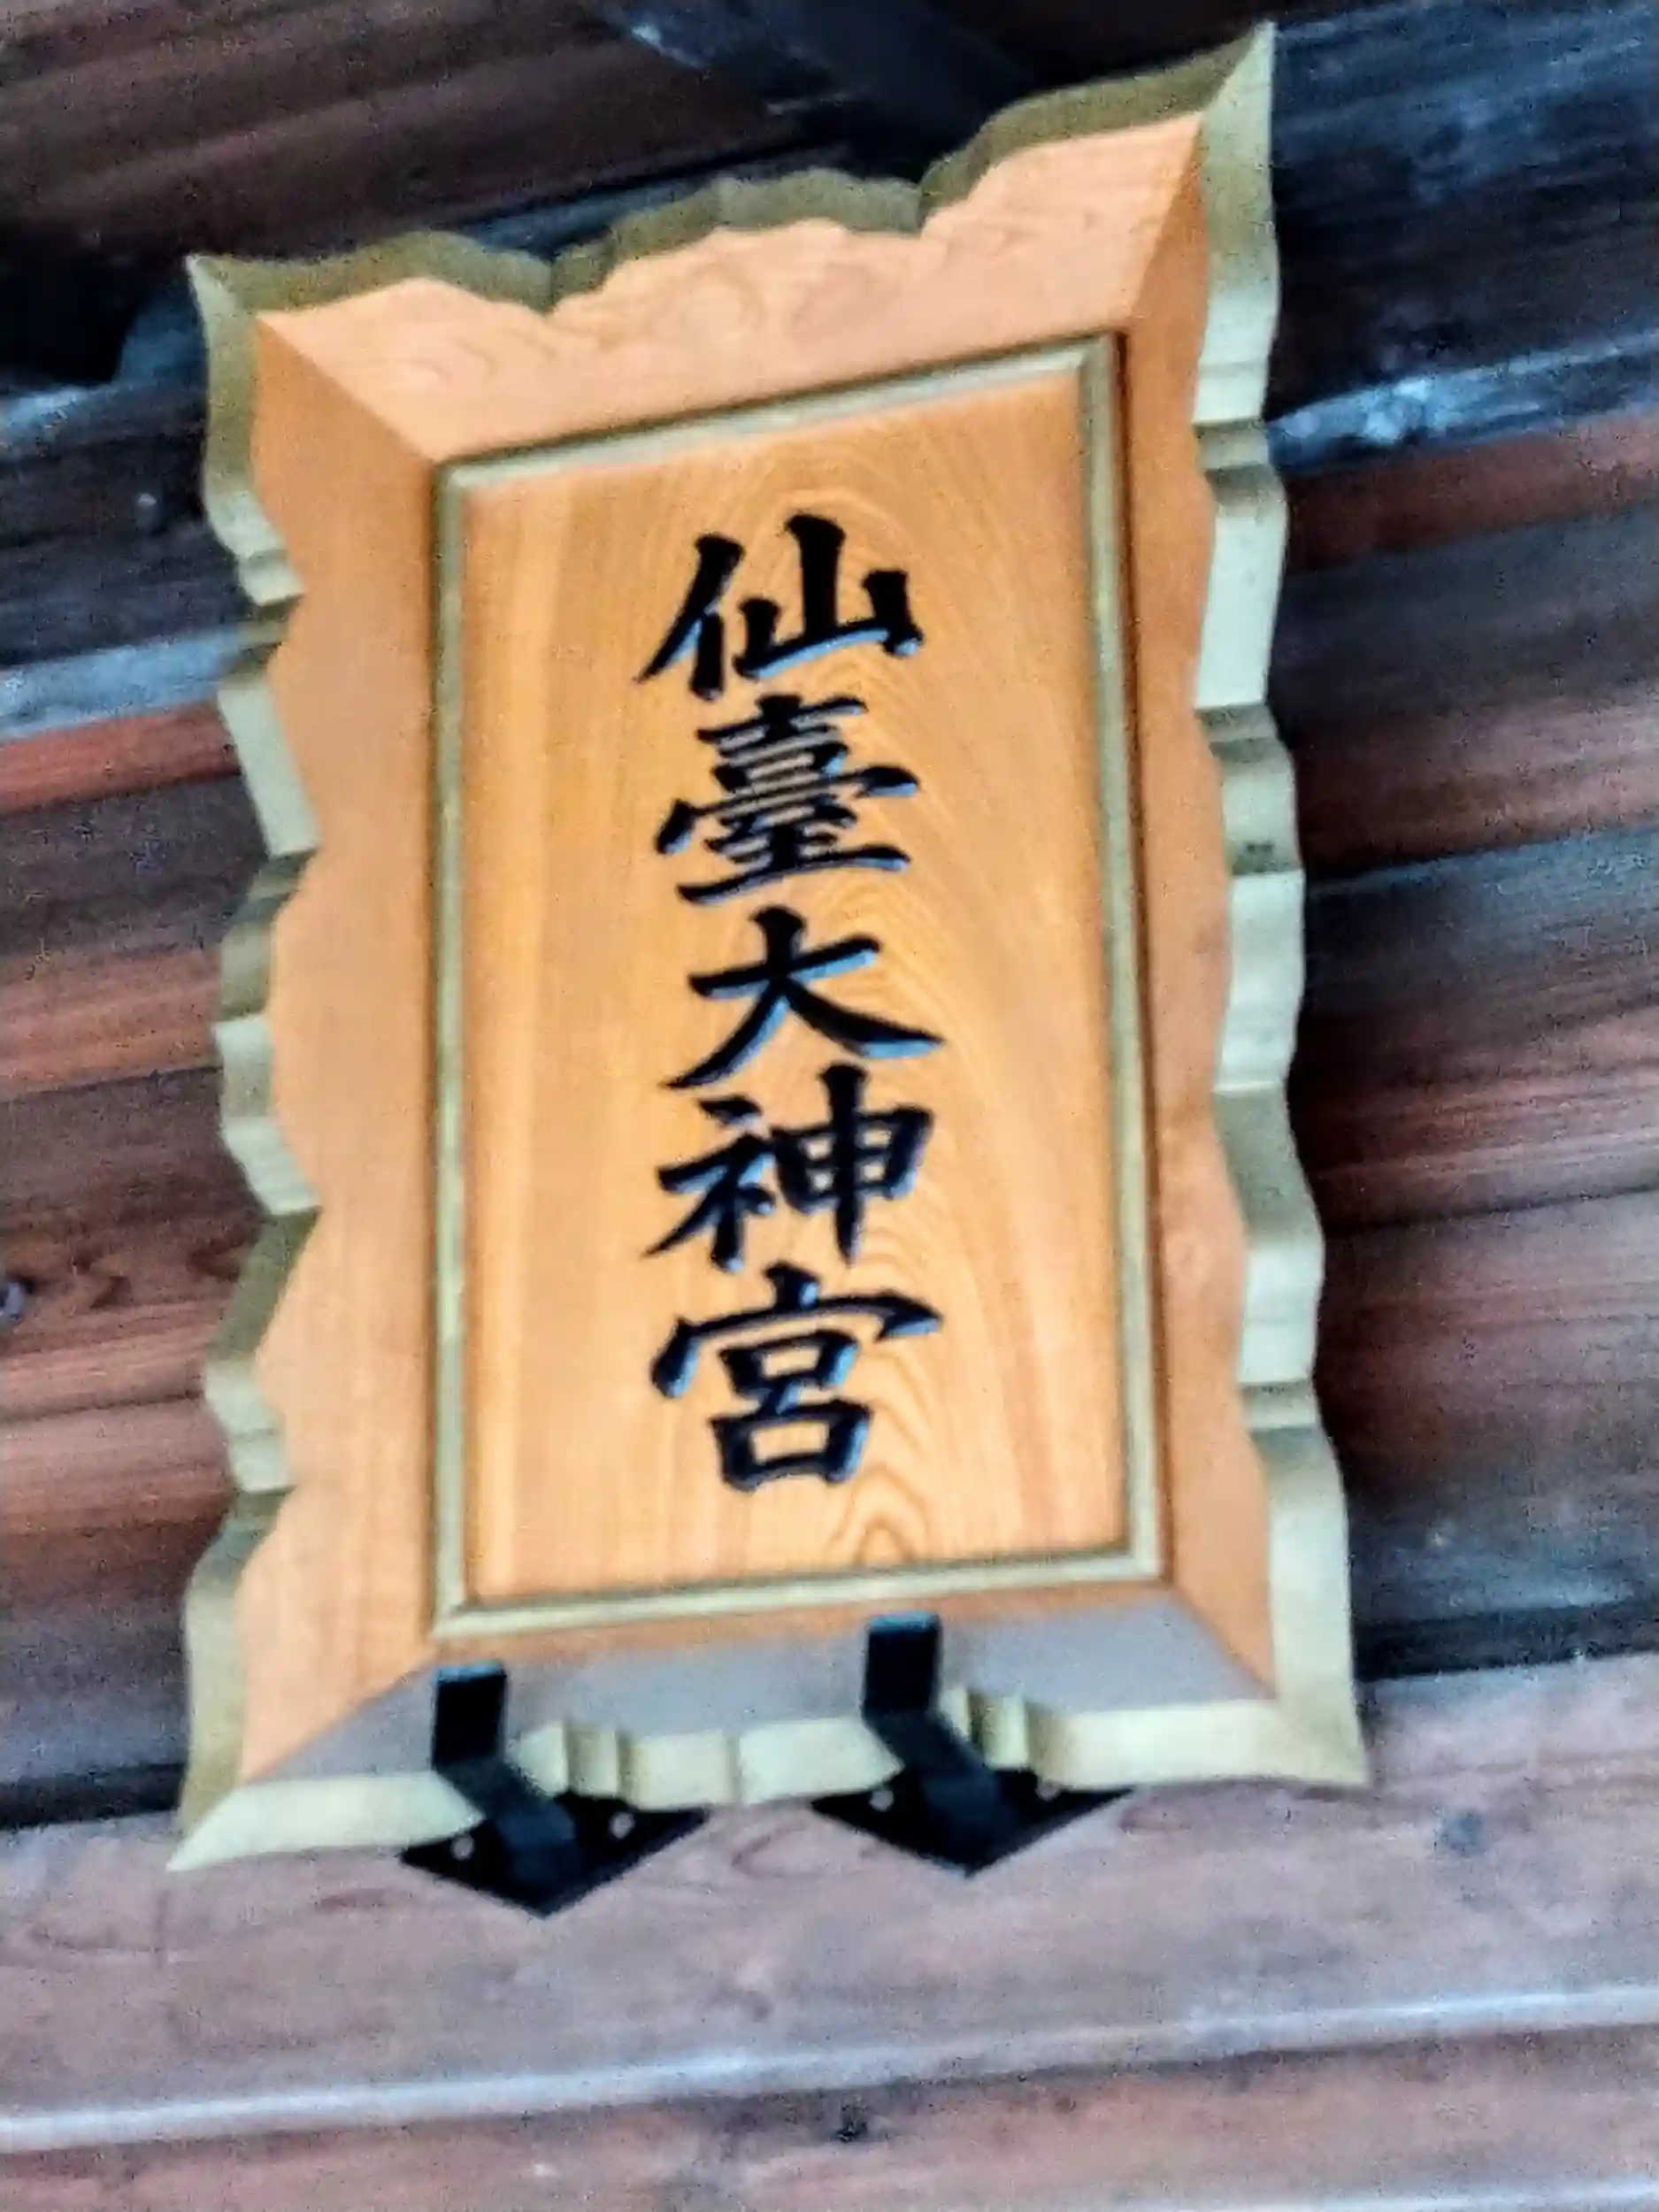 仙臺大神宮